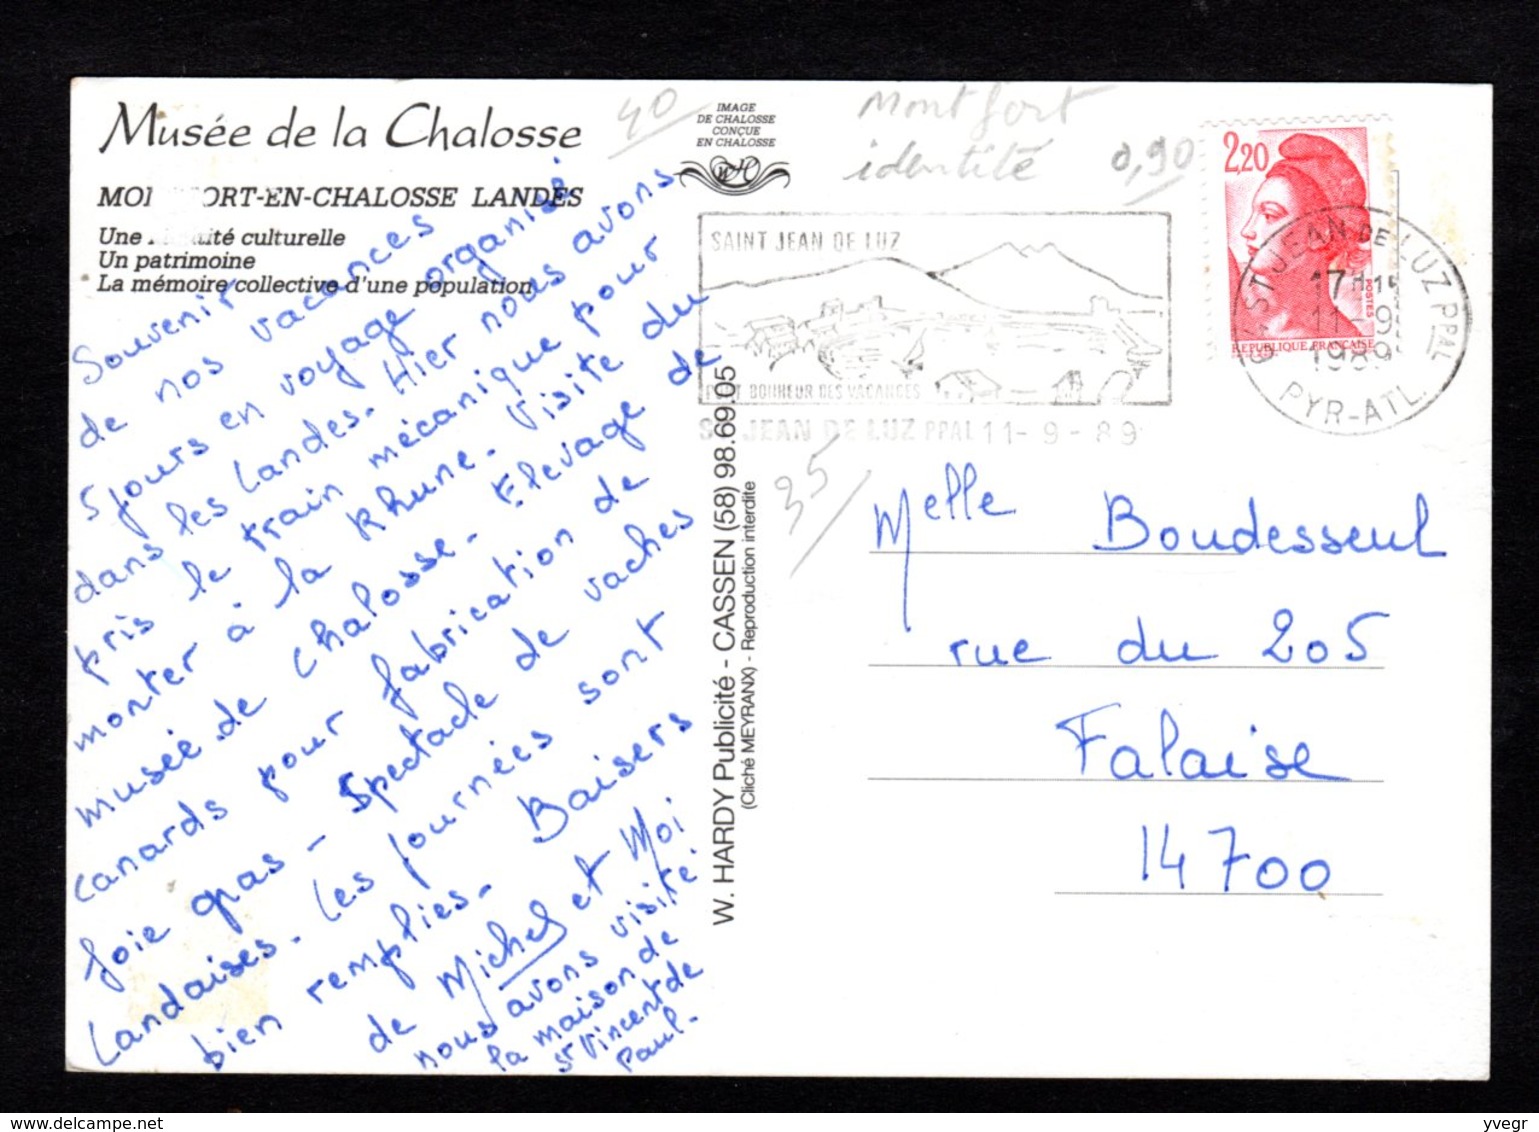 Musée de la Chalosse
ORT-EN-CHALOSSE LANDES
Une culturelle
Un patrimoine
La mémoire collective d'une population
40
IMAGE
DE CHALOSSE
CONÇUE
EN CHALOSSE
Montfort
identité 0,90
2,20
POSTES
REPUBLIQUE FRANÇAISE
ST JEAN DE LUZ PPAL
17H15
11-9
1989
PYR-ATL.
SAINT JEAN DE LUZ
PORT BONHEUR DES VACANCES
ST JEAN DE LUZ PPAL 11-9-89
35
Souvenir
de nos vacances
5 jours en voyage organisé
dans les Landes. Hier nous avons
pris le train mécanique pour
monter à la Rhune. Visite du
musée de Chalosse. Elevage de
canards pour fabrication de
foie gras - Spectacle de vaches
Landaises. Les journées sont
bien remplies. Baisers
de Michel et Moi
nous avons visité
la maison de
St Vincent de
Paul.
W. HARDY Publicité - CASSEN (58) 98.69.05
(Cliché MEYRANX) - Reproduction interdite
Melle Boudesseul
rue du 205
Falaise
14700
yvegr